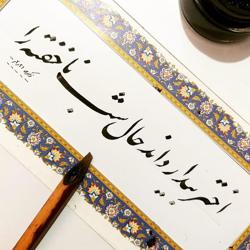 اختر بیدار داند حال شب ناخفته را